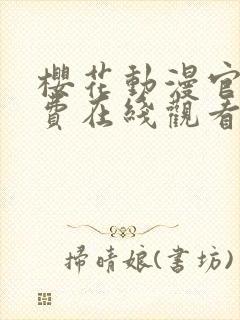 櫻花動漫官
費在綫觀看
掃晴娘(書坊)